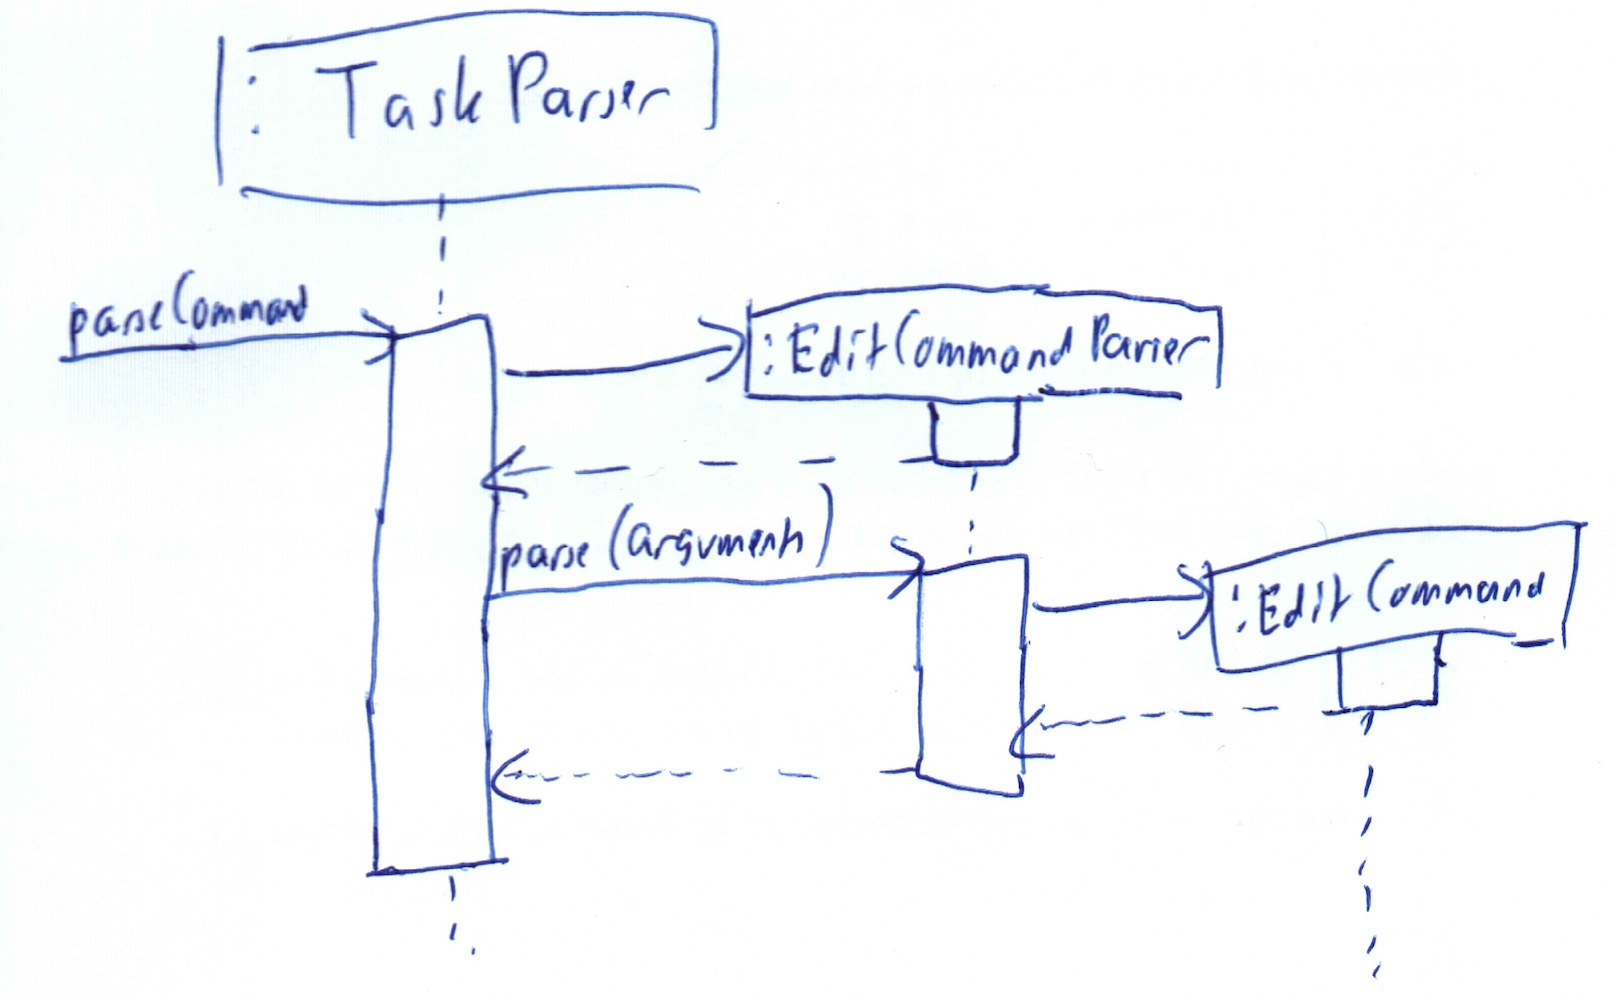 : Task Parser
parseCommand
:EditCommand Parser
parse (arguments)
:Edit Command